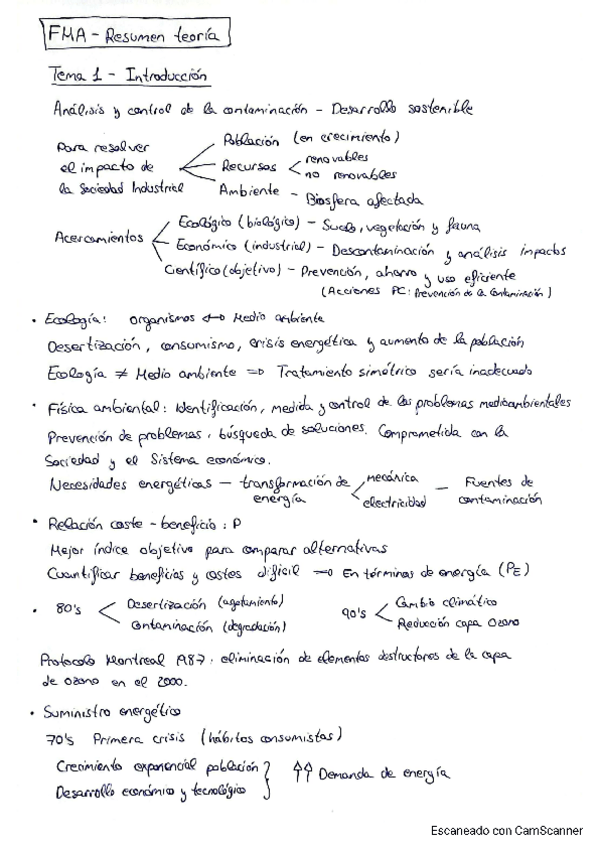 FMA - Resumen teoría
Tema 1 - Introducción
Análisis y control de la contaminación - Desarrollo sostenible
Para resolver el impacto de la Sociedad Industrial
Población (en crecimiento)
Recursos < renovables
no renovables
Ambiente - Biosfera afectada
Acercamientos
Ecológico (biológico) - Suelo, vegetación y fauna
Económico (industrial) - Descontaminación y análisis impactos
Científico (objetivo) - Prevención, ahorro y uso eficiente
(Acciones PC: Prevención de la Contaminación)
• Ecología: organismos ↔ Medio ambiente
Desertización, consumismo, crisis energética y aumento de la población
Ecología ≠ Medio ambiente ⇒ Tratamiento simétrico sería inadecuado
• Física ambiental: Identificación, medida y control de los problemas medioambientales
Prevención de problemas, búsqueda de soluciones. Comprometida con la
Sociedad y el Sistema económico.
Necesidades energéticas - transformación de energía < mecánica
electricidad - Fuentes de contaminación
• Relación coste - beneficio: P
Mejor índice objetivo para comparar alternativas
Cuantificar beneficios y costes difícil ⇒ En términos de energía (PE)
• 80's < Desertización (agotamiento)
Contaminación (degradación)
90's < Cambio climático
Reducción capa Ozono
Protocolo Montreal 1987: eliminación de elementos destructores de la capa
de ozono en el 2000.
• Suministro energético
70's Primera crisis (hábitos consumistas)
Crecimiento exponencial población
Desarrollo económico y tecnológico
} ⇑⇑ Demanda de energía
Escaneado con CamScanner